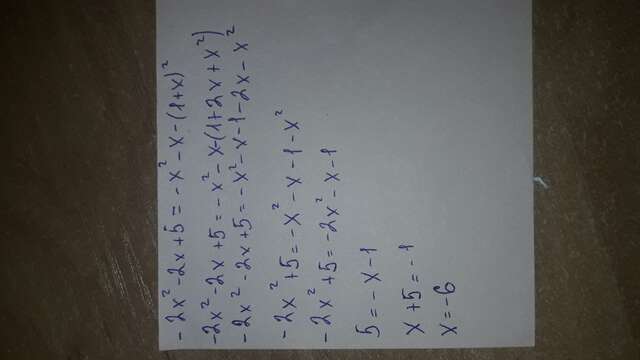 -2x² - 2x + 5 = -x² - x - (1+x)²
-2x² - 2x + 5 = -x² - x - (1 + 2x + x²)
-2x² - 2x + 5 = -x² - x - 1 - 2x - x²
-2x² + 5 = -x² - x - 1 - x²
-2x² + 5 = -2x² - x - 1
5 = -x - 1
x + 5 = -1
x = -6